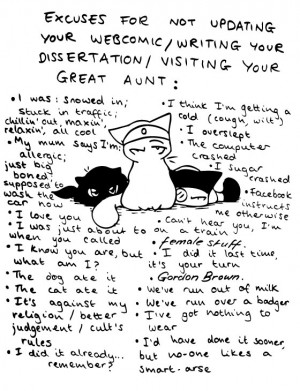 EXCUSES FOR NOT UPDATING
YOUR WEBCOMIC/WRITING YOUR
DISSERTATION/VISITING YOUR
GREAT AUNT:
• I was: snowed in;
stuck in traffic;
chillin' out, maxin',
relaxin', all cool
• My mum says I'm:
allergic;
just big
boned;
supposed to
wash the
car now
• I love you
• I was just about to
when you called
• I know you are, but
what am I?
• The dog ate it
• The cat ate it
• It's against my
religion / better
judgement / cult's
rules
• I did it already...
remember?
• I think I'm getting a
cold (cough, wilt)
• I overslept
• The computer
crashed
• I sugar
crashed
• Facebook
instructs
me otherwise
• Can't hear you, I'm
on a train
• female stuff.
• I did it last time,
it's your turn
• Gordon Brown.
• We've run out of milk
• We've run over a badger
• I've got nothing to
wear
• I'd have done it sooner,
but no-one likes a
smart-arse